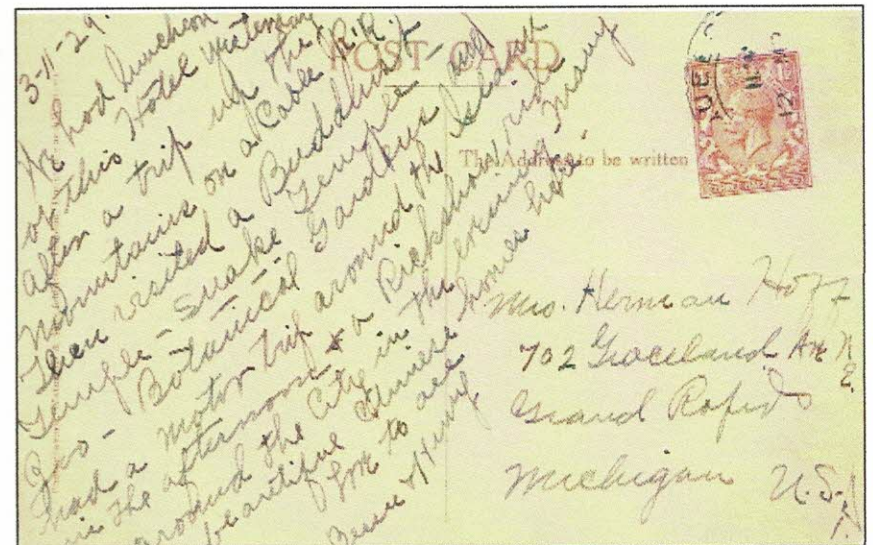 3-11-29.
We had luncheon
at this Hotel yesterday
after a trip up the
Mountains on a Cable R.R.
Then visited a Buddhist
Temple - Snake Temple - and
Zoo - Botanical Gardens and
had a motor trip around the Island
in the afternoon & a Rickshaw ride
around the City in the evening Many
beautiful Chinese homes here
Love to all
POST CARD
The Address to be written
Mrs. Herman Hoff
702 Graceland Ave N
E.
Grand Rapids
Michigan U.S.